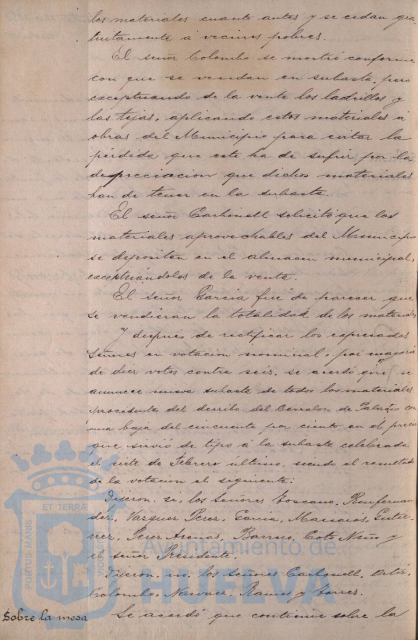 los materiales cuanto antes y se cedan gra
tuitamente a vecinos pobres.
El señor Colombo se mostró conforme
con que se vendan en subasta, pero
exceptuando de la venta los ladrillos y
las tejas, aplicando estos materiales á
obras del Municipio para evitar la
pérdida que este ha de sufrir por la
depreciacion que dichos materiales
han de tener en la subasta.
El señor Carbonell solicitó que los
materiales aprovechables del Municipio
se depositen en el almacen municipal,
exceptuándolos de la venta.
El señor Garcia fué de parecer que
se vendieran la totalidad de los materiales
Y despues de rectificar los expresados
señores en votacion nominal, por mayoria
de diez votos contra seis, se acordó que se
anuncie nueva subasta de todos los materiales
procedentes del derribo del
una baja del cincuenta por ciento en el precio
que sirvió de tipo á la subasta celebrada
el siete de Febrero último, siendo el resultado
de la votacion el siguiente:
Dijeron si, los Señores Toscano,
Vazquez Perez, Garcia, Gutie
rrez, Perez Barroso, Coto Mora y
el señor Presidente.
Dijeron no, los señores Carbonell,
Colombo, Narvaez, Ramos y Torres.
Sobre la mesa Se acordó que continúe sobre la
PORTUS MARIS ET TERRAE
Ayuntamiento de
HUELVA